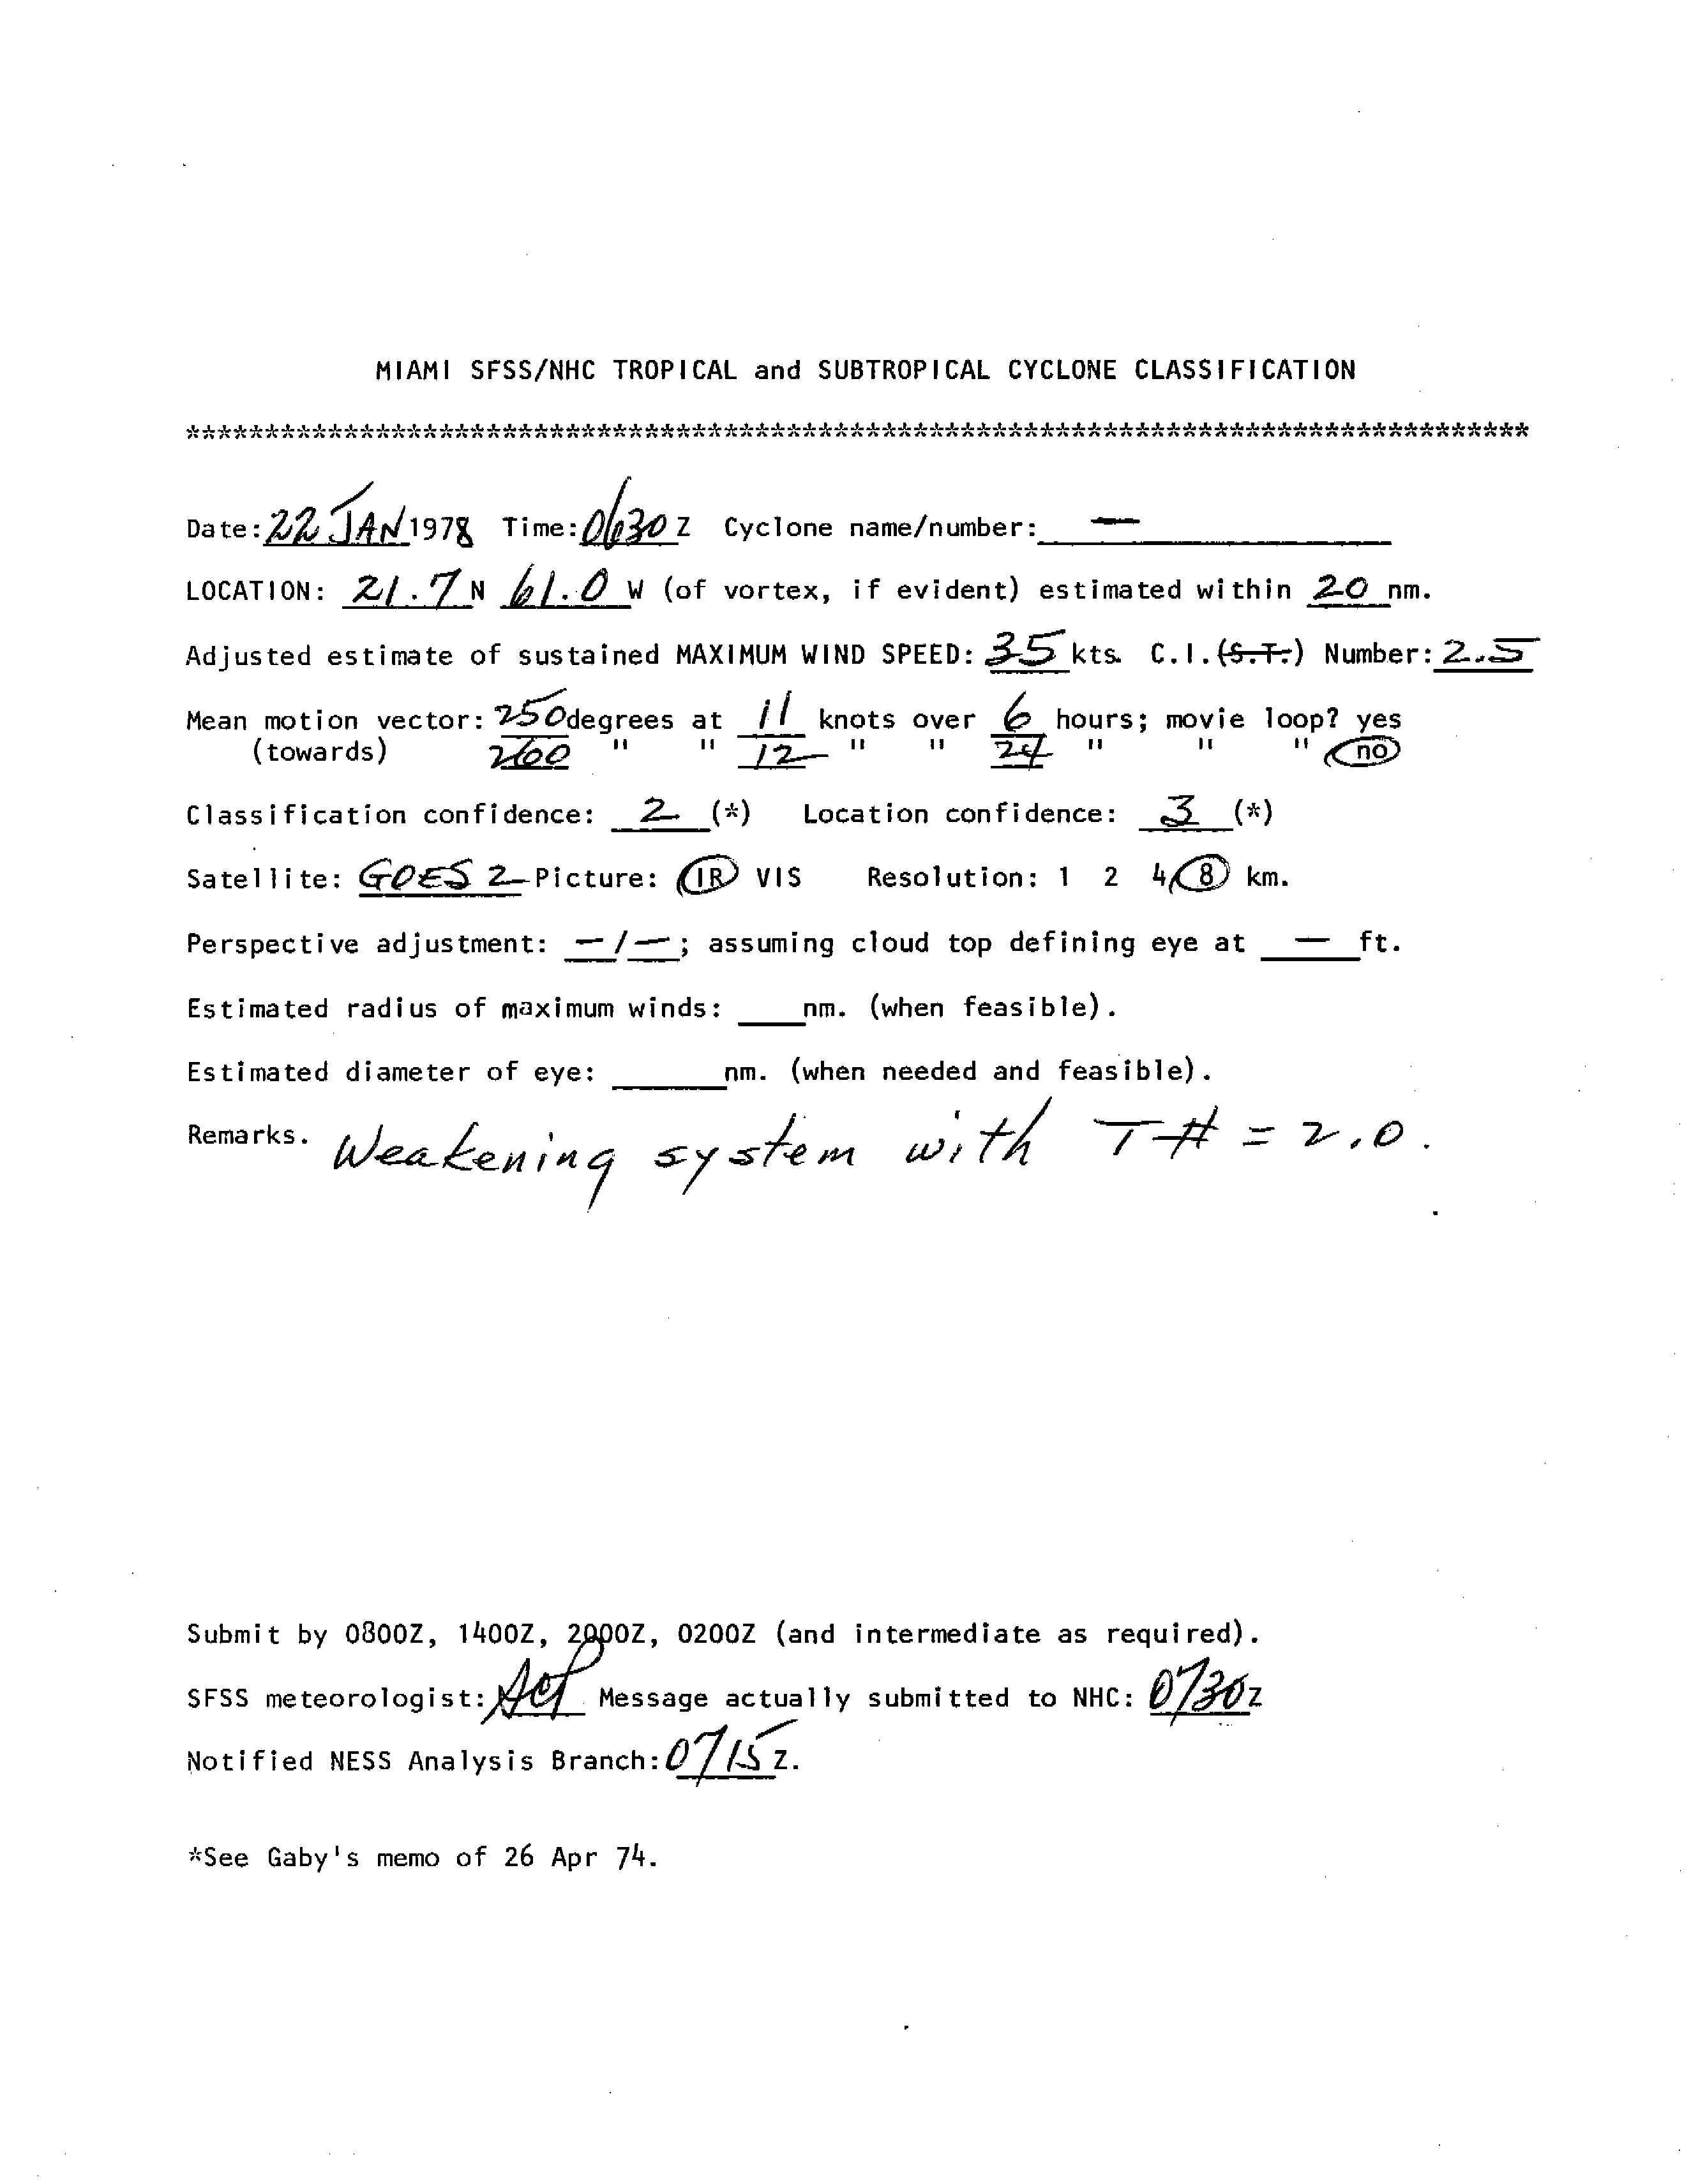 MIAMI SFSS/NHC TROPICAL and SUBTROPICAL CYCLONE CLASSIFICATION
*************************************************************************************
Date: 22 JAN 1978 Time: 0630 Z Cyclone name/number: —
LOCATION: 21.7 N 61.0 W (of vortex, if evident) estimated within 20 nm.
Adjusted estimate of sustained MAXIMUM WIND SPEED: 35 kts. C.I. (S.T.) Number: 2.5
Mean motion vector: 250 degrees at 11 knots over 6 hours; movie loop? yes
(towards) 260 " " 12 " " 24 " " " no
Classification confidence: 2 (*) Location confidence: 3 (*)
Satellite: GOES 2 Picture: IR VIS Resolution: 1 2 4 8 km.
Perspective adjustment: — / — ; assuming cloud top defining eye at — ft.
Estimated radius of maximum winds: ____nm. (when feasible).
Estimated diameter of eye: _______nm. (when needed and feasible).
Remarks. Weakening system with T# = 2.0.
Submit by 0800Z, 1400Z, 2000Z, 0200Z (and intermediate as required).
SFSS meteorologist: Message actually submitted to NHC: 0730Z
Notified NESS Analysis Branch: 0715 Z.
*See Gaby's memo of 26 Apr 74.